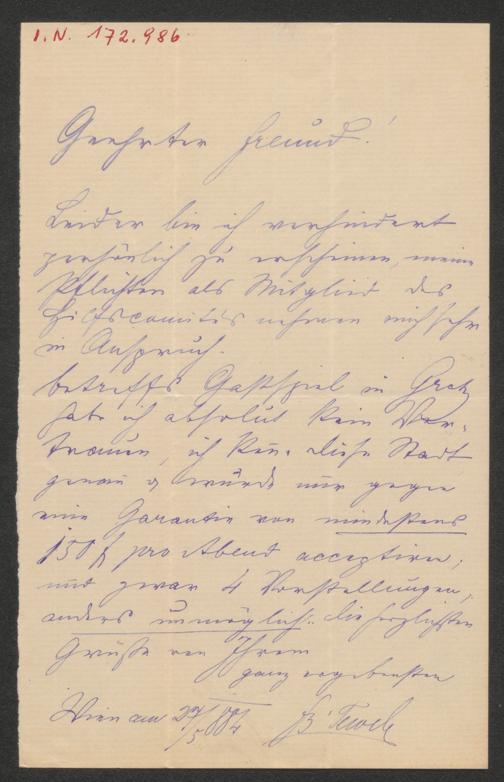 I. N. 172.986
Geehrter Freund!
Leider bin ich verhindert
persönlich zu erscheinen, meine
Pflichten als Mitglied des
Hilfscomités nehmen mich sehr
in Anspruch.
betreffs Gastspiel in Gratz
habe ich absolut kein Ver-
trauen, ich kenne diese Stadt
genau & würde nur gegen
eine Garantie von mindestens
150 f pro Abend acceptiren,
und zwar 4 Vorstellungen,
anders unmöglich. Die herzlichsten
Grüße von Ihrem
ganz ergebensten
Wien am 27/5 884